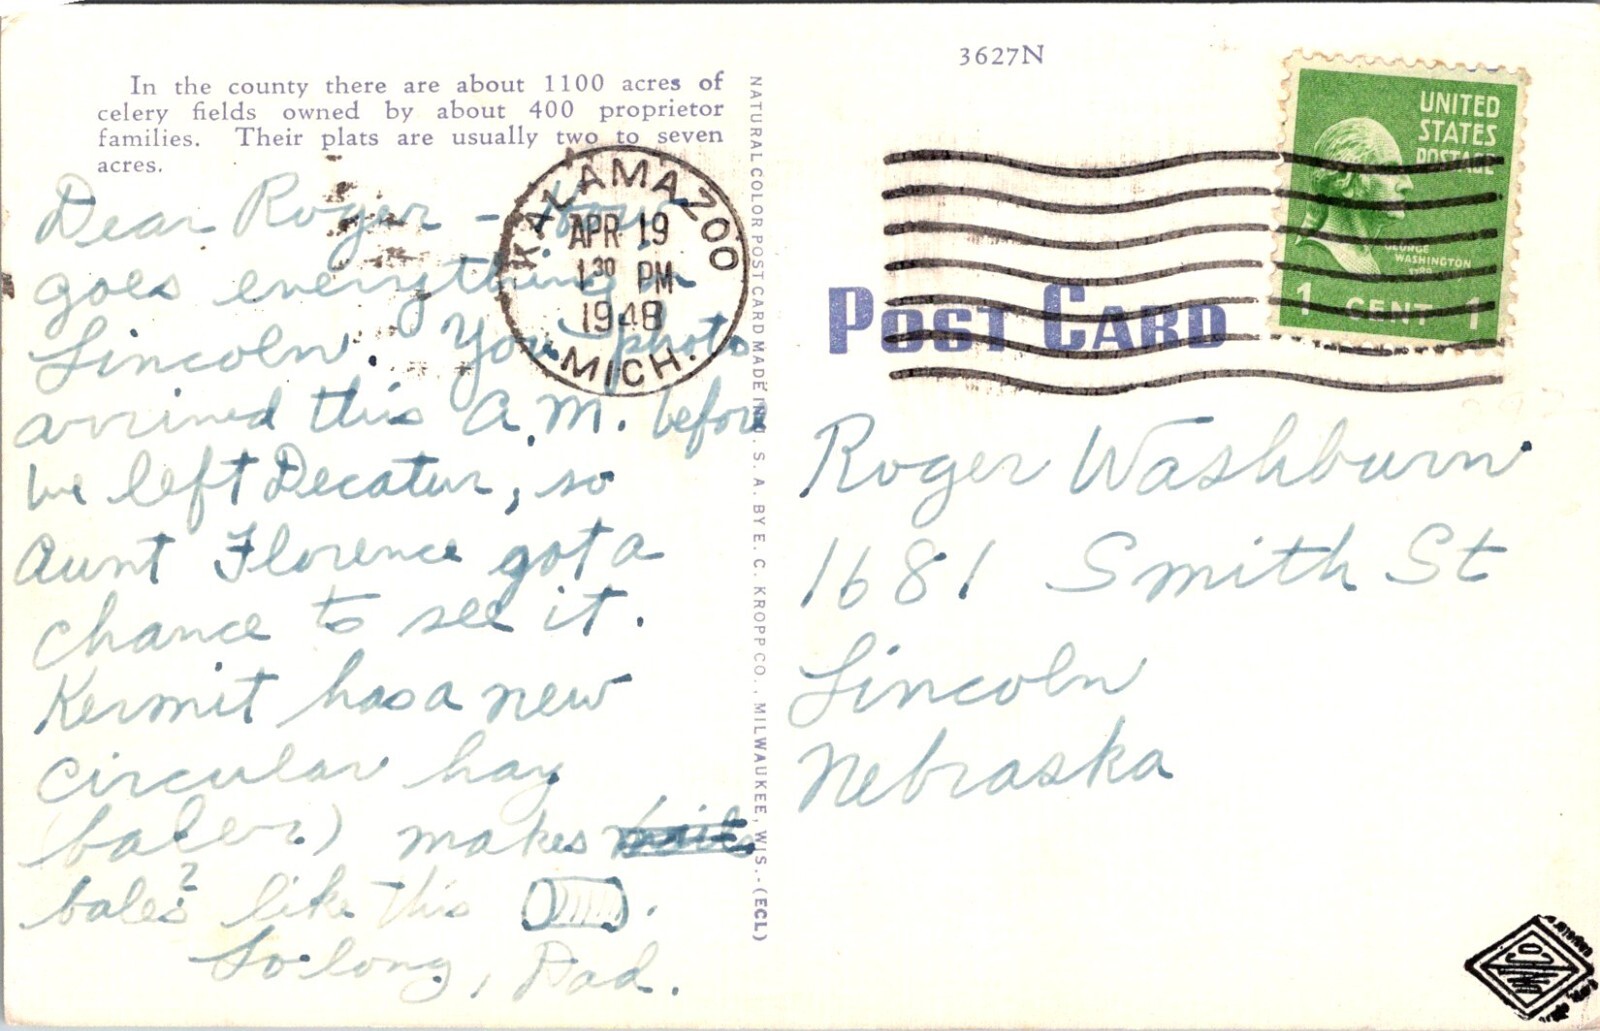 In the county there are about 1100 acres of
celery fields owned by about 400 proprietor
families. Their plats are usually two to seven
acres.
Dear Roger - How
goes everything in
Lincoln. You photo
arrived this A.M. before
we left Decatur, so
Aunt Florence got a
chance to see it.
Kermit has a new
circular hay
(baler.) makes
bales? like this
So long, Dad.
NATURAL COLOR POST CARD MADE IN U. S. A. BY E. C. KROPP CO., MILWAUKEE, WIS.-(ECL)
KALAMAZOO
APR 19
1 30 PM
1948
MICH.
3627N
UNITED
STATES
POSTAGE
GEORGE
WASHINGTON
1 CENT 1
POST CARD
Roger Washburn
1681 Smith St
Lincoln
Nebraska